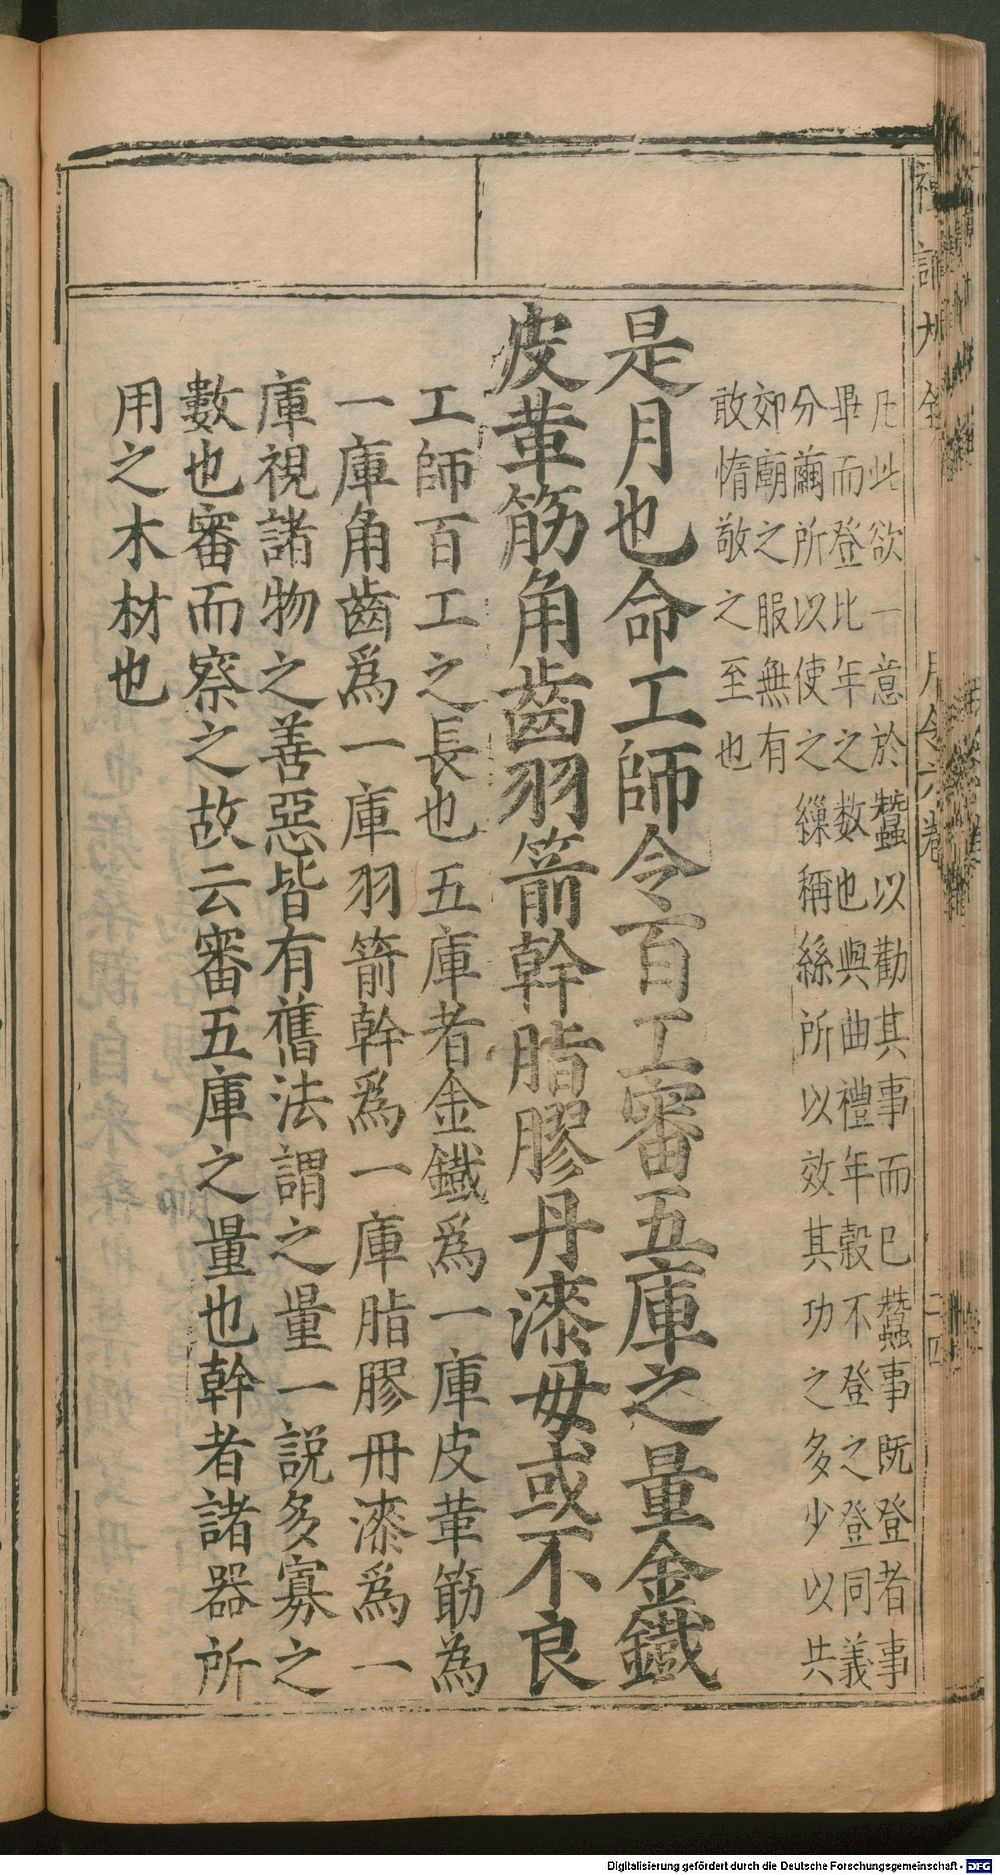 凡此欲一意於蠶以勸其事而已蠶事既登者事
畢而登比年之数也與曲禮年穀不登之登同義
分繭所以使之繅稱絲所以效其功之多少以共
郊廟之服無有
敢惰敬之至也
是月也命工師令百工審五庫之量金鐵
皮革筋角齒羽箭幹脂膠丹漆毋或不良
工師百工之長也五庫者金鐵爲一庫皮革筋為
一庫角齒爲一庫羽箭幹爲一庫脂膠丹漆爲一
庫視諸物之善惡皆有舊法謂之量一説多寡之
數也審而察之故云審五庫之量也幹者諸器所
用之木材也
月令六卷
Digitalisierung gefördert durch die Deutsche Forschungsgemeinschaft - DFG